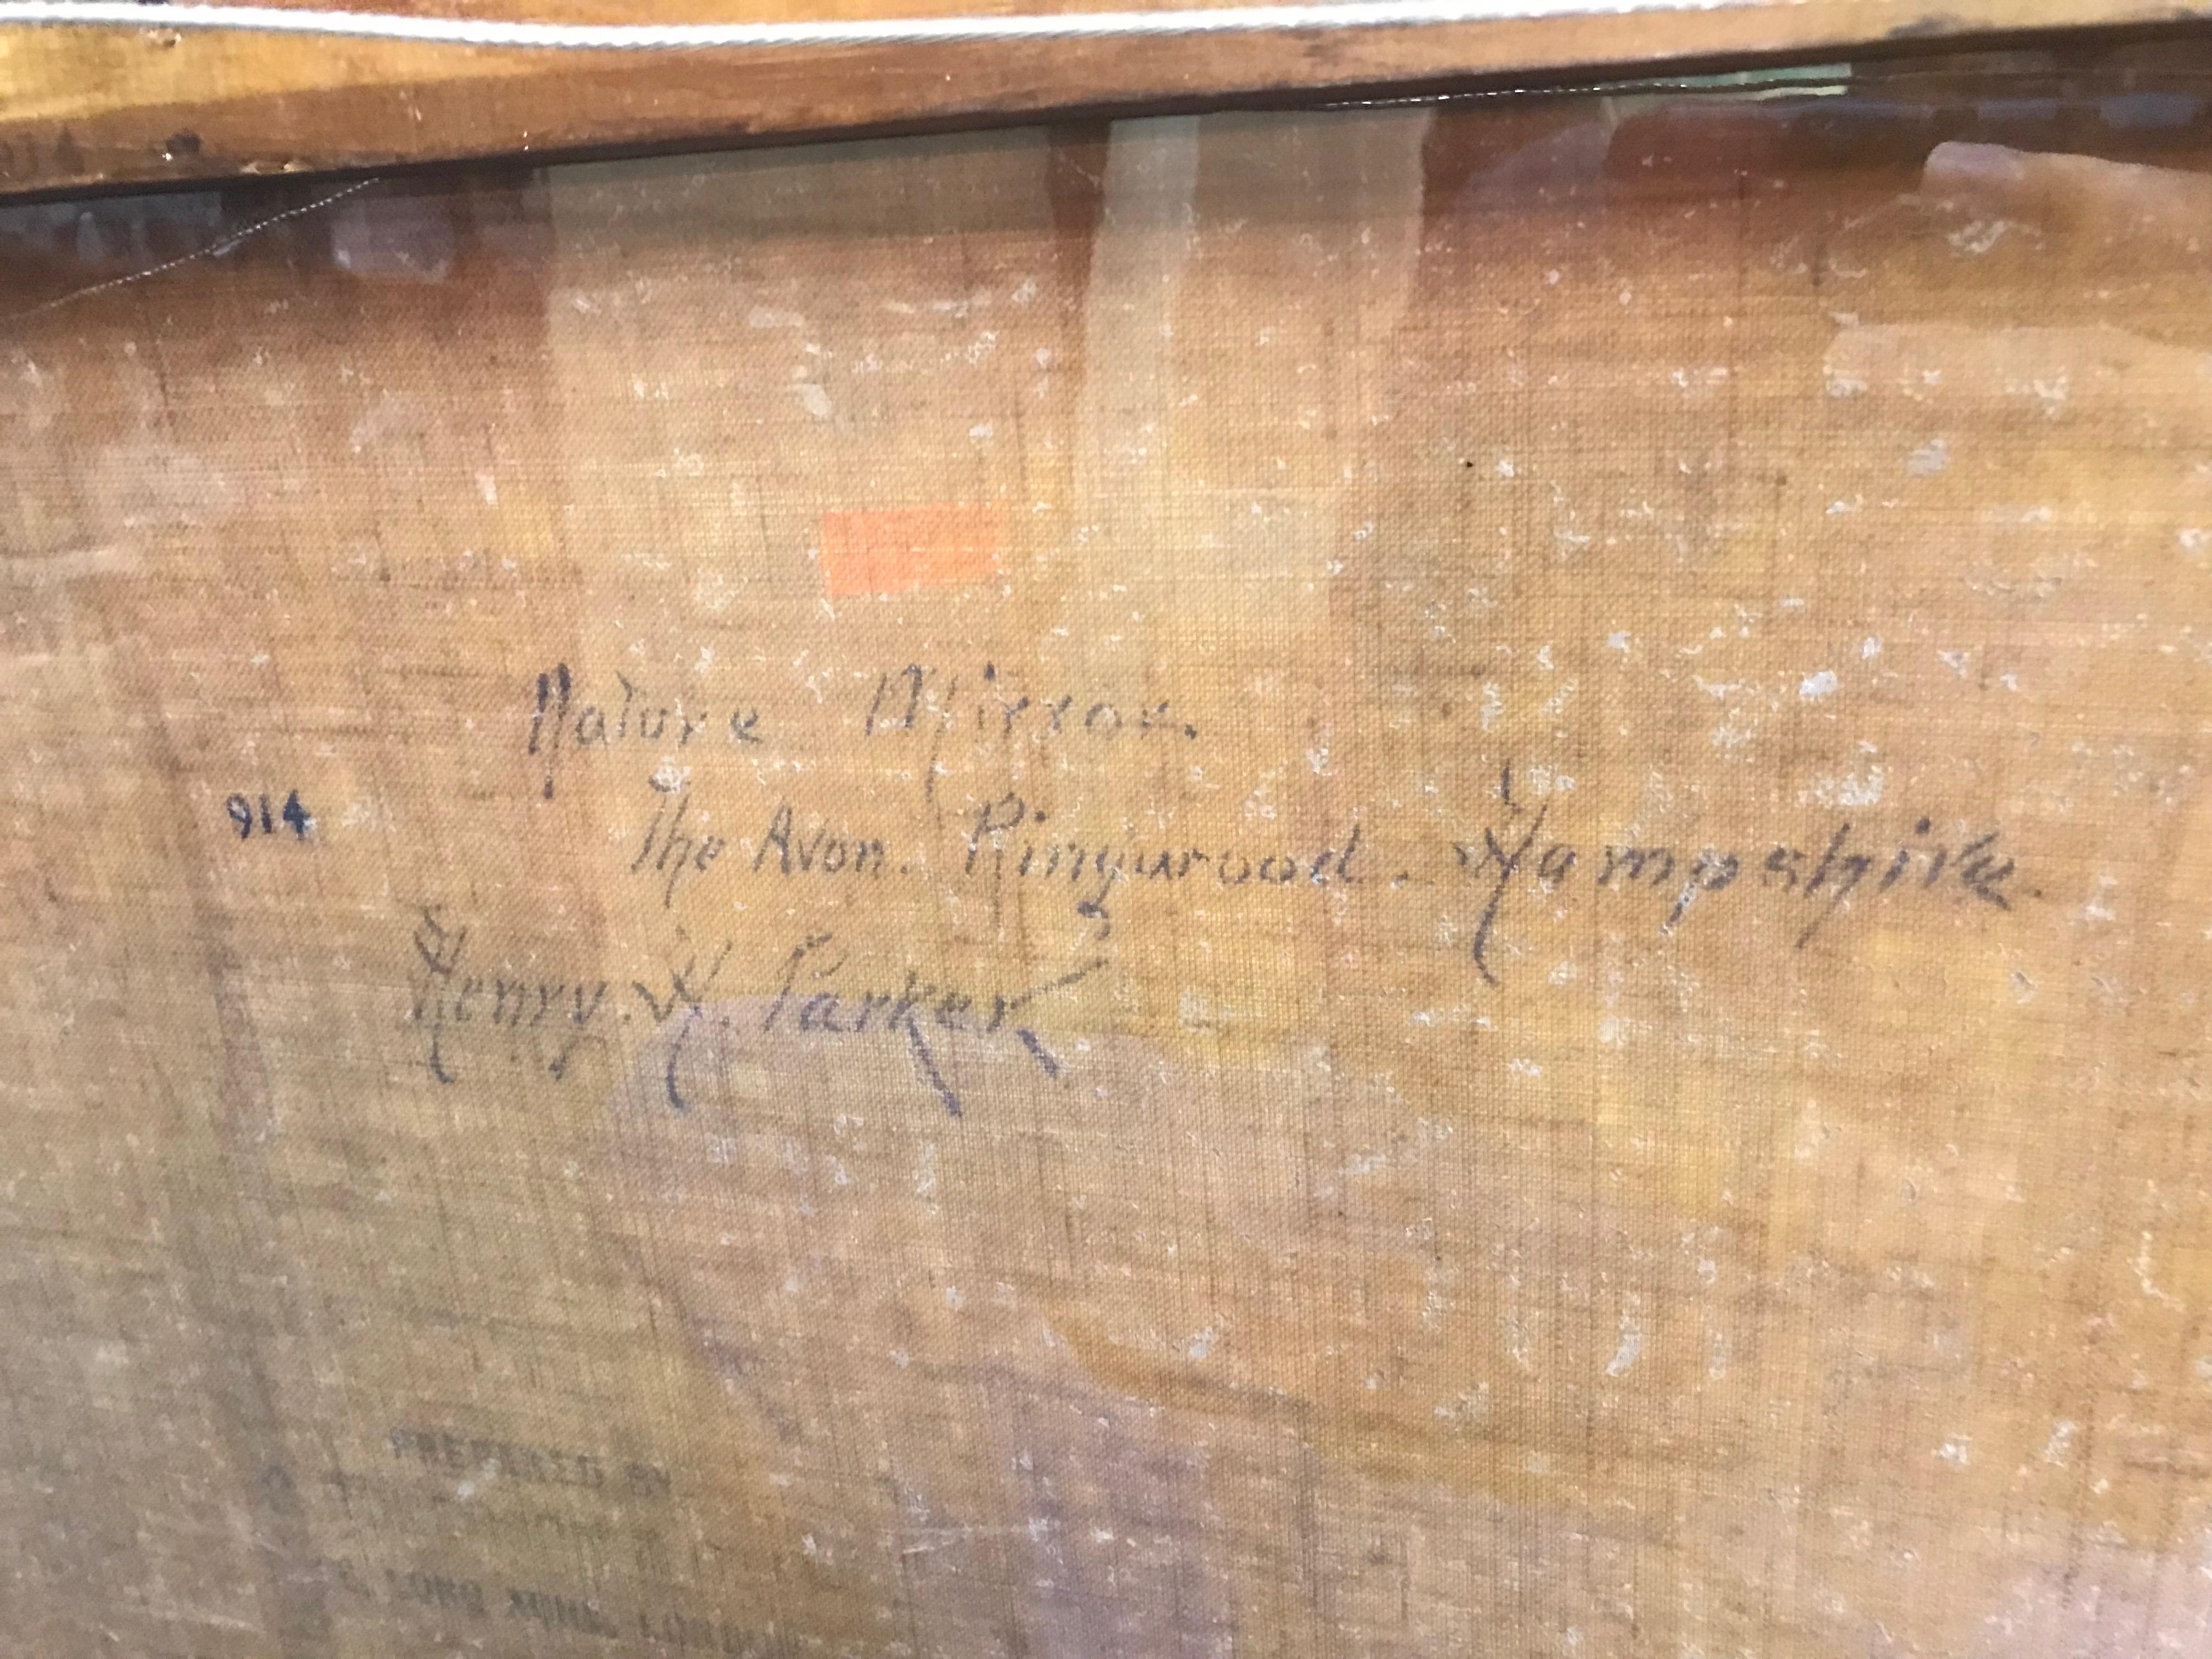 Nature Mirror.
914
The Avon. Ringwood. Hampshire.
Henry. H. Parker
PREPARED BY
LONG ACRE LONDON